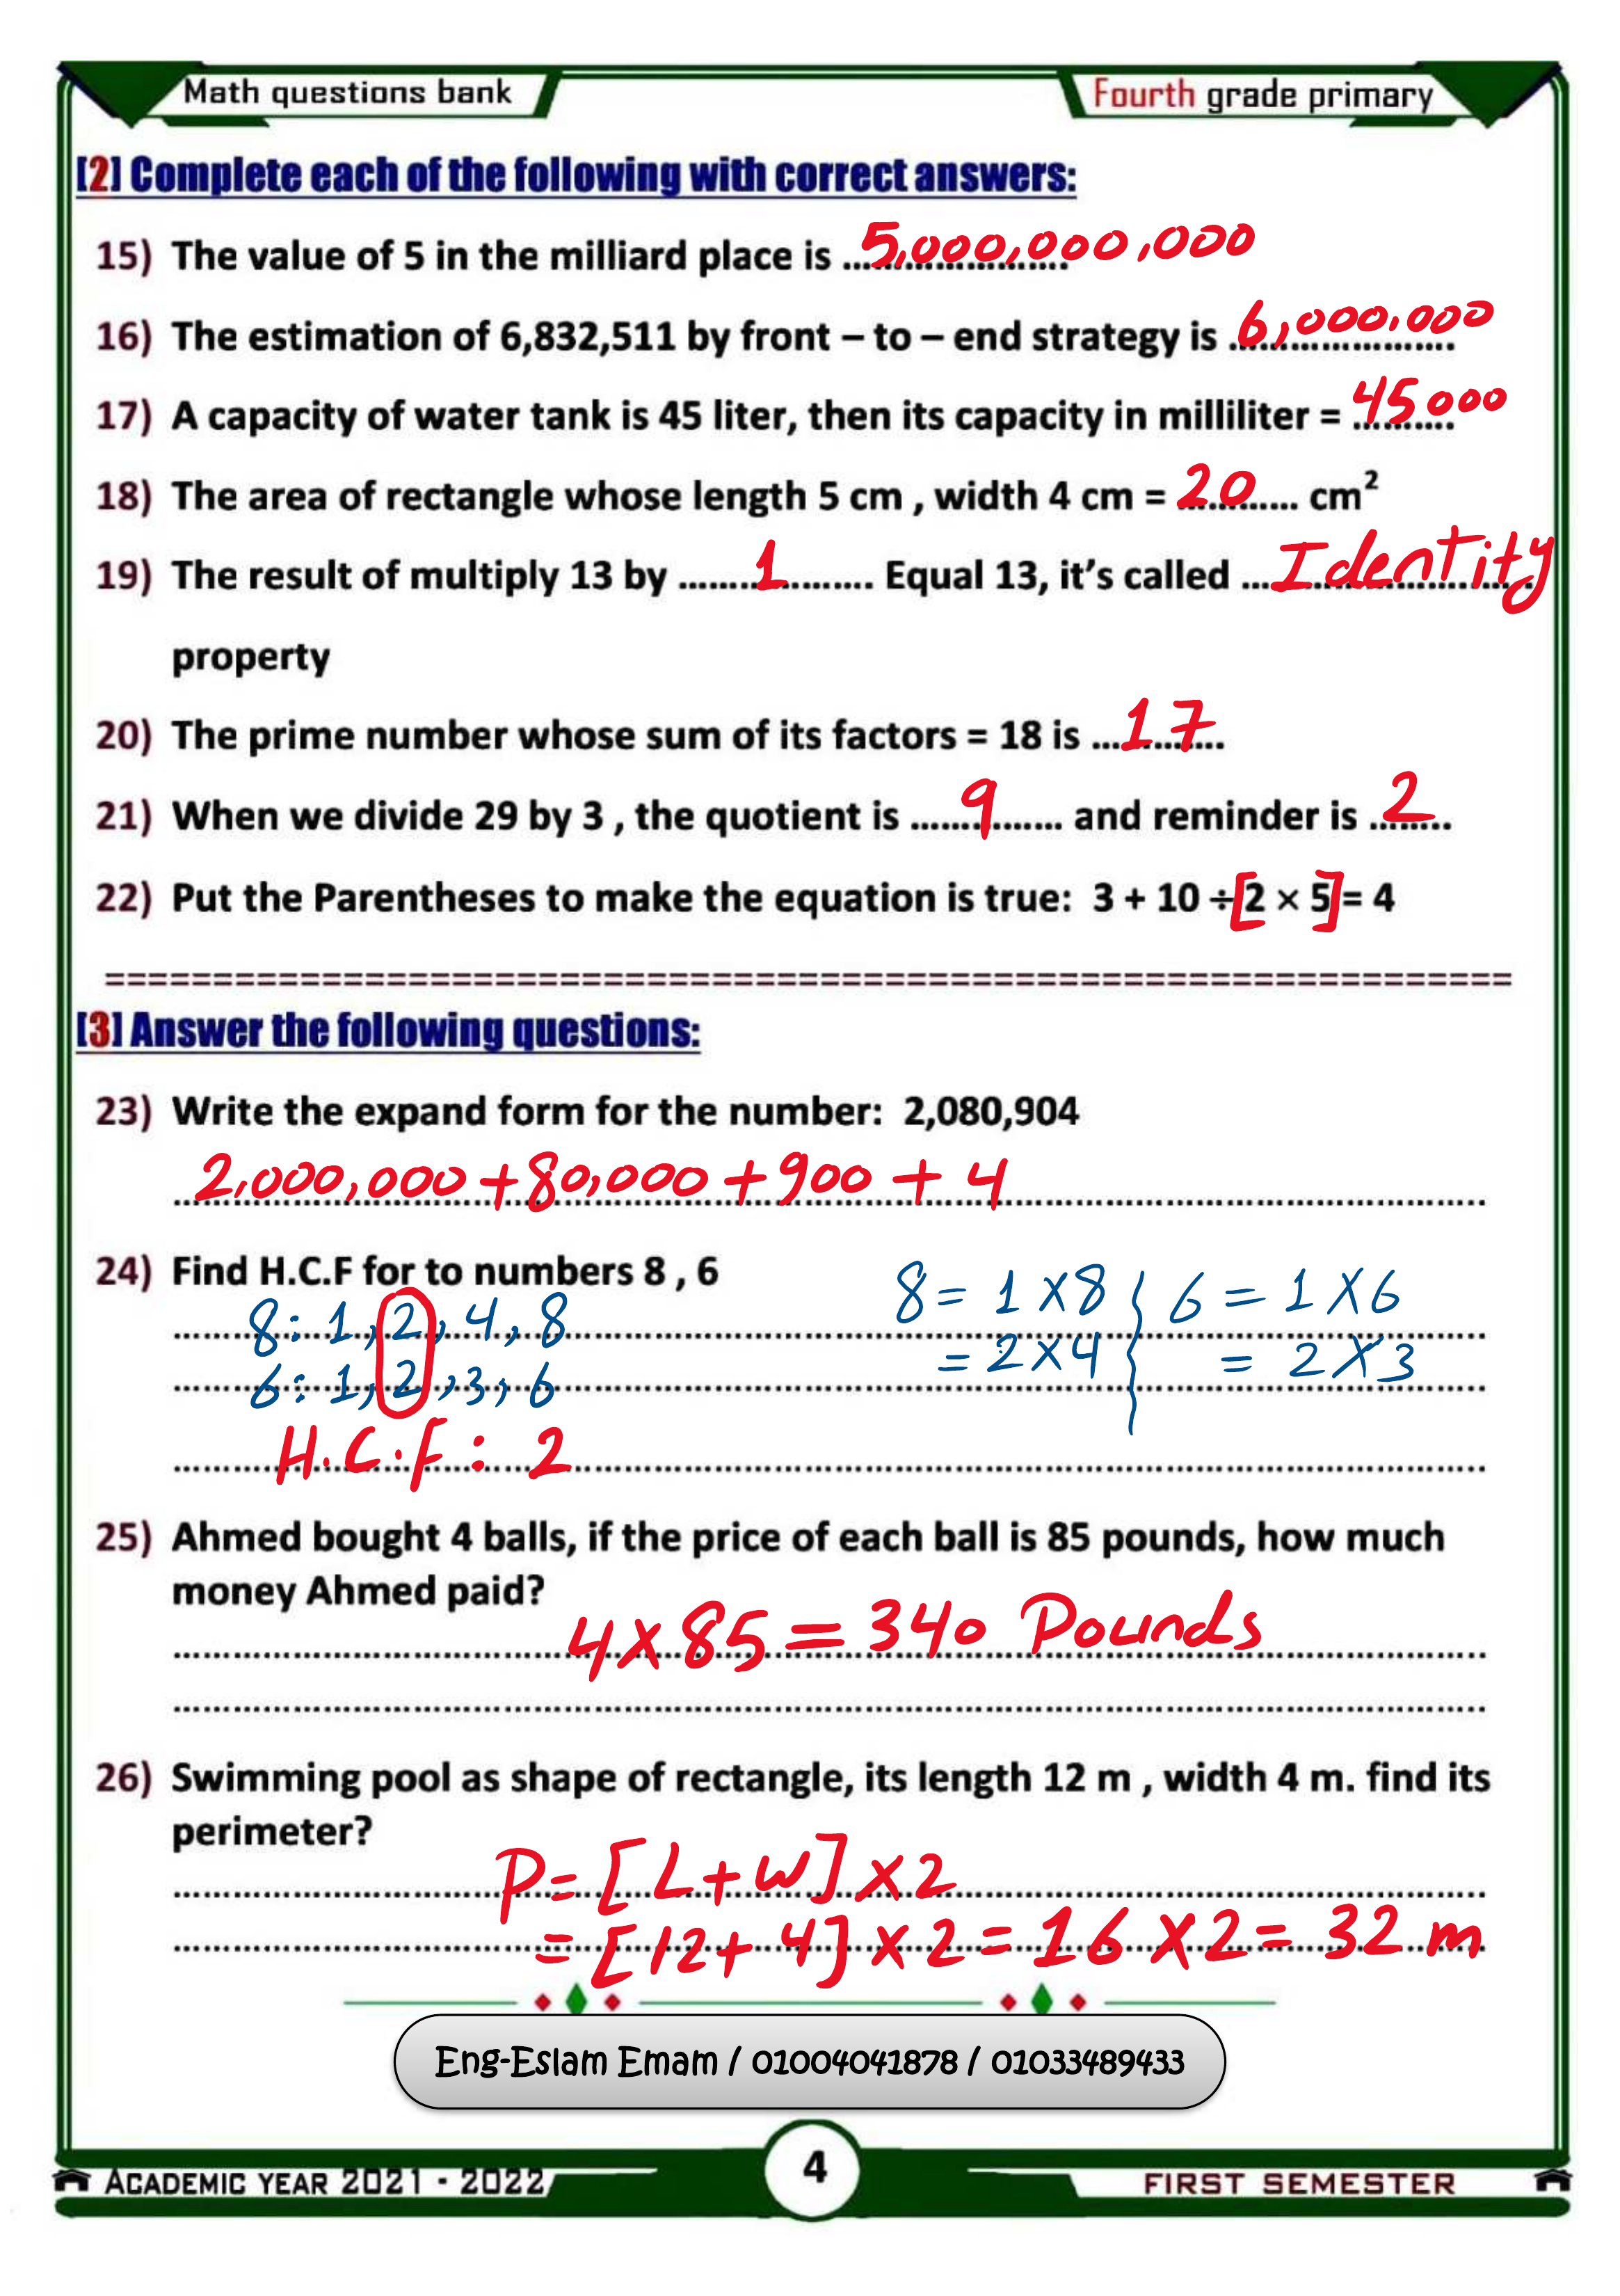 Math questions bank
Fourth grade primary
[2] Complete each of the following with correct answers:
15) The value of 5 in the milliard place is ........................ 5,000,000,000
16) The estimation of 6,832,511 by front – to – end strategy is ........................ 6,000,000
17) A capacity of water tank is 45 liter, then its capacity in milliliter = ........... 45000
18) The area of rectangle whose length 5 cm , width 4 cm = 20 ............ cm²
19) The result of multiply 13 by ........1.......... Equal 13, it's called ... Identity
property
20) The prime number whose sum of its factors = 18 is ... 17
21) When we divide 29 by 3 , the quotient is ...... 9 ...... and reminder is 2 ........
22) Put the Parentheses to make the equation is true: 3 + 10 ÷ [2 × 5] = 4
[3] Answer the following questions:
23) Write the expand form for the number: 2,080,904
2,000,000 + 80,000 + 900 + 4
24) Find H.C.F for to numbers 8 , 6
8: 1, 2, 4, 8
6: 1, 2, 3, 6
H.C.F: 2
8 = 1 × 8
= 2 × 4
6 = 1 × 6
= 2 × 3
25) Ahmed bought 4 balls, if the price of each ball is 85 pounds, how much
money Ahmed paid?
4 × 85 = 340 Pounds
26) Swimming pool as shape of rectangle, its length 12 m , width 4 m. find its
perimeter?
P = [L + W] × 2
= [12 + 4] × 2 = 16 × 2 = 32 m
Eng-Eslam Emam / 01004041878 / 01033489433
ACADEMIC YEAR 2021 - 2022
4
FIRST SEMESTER